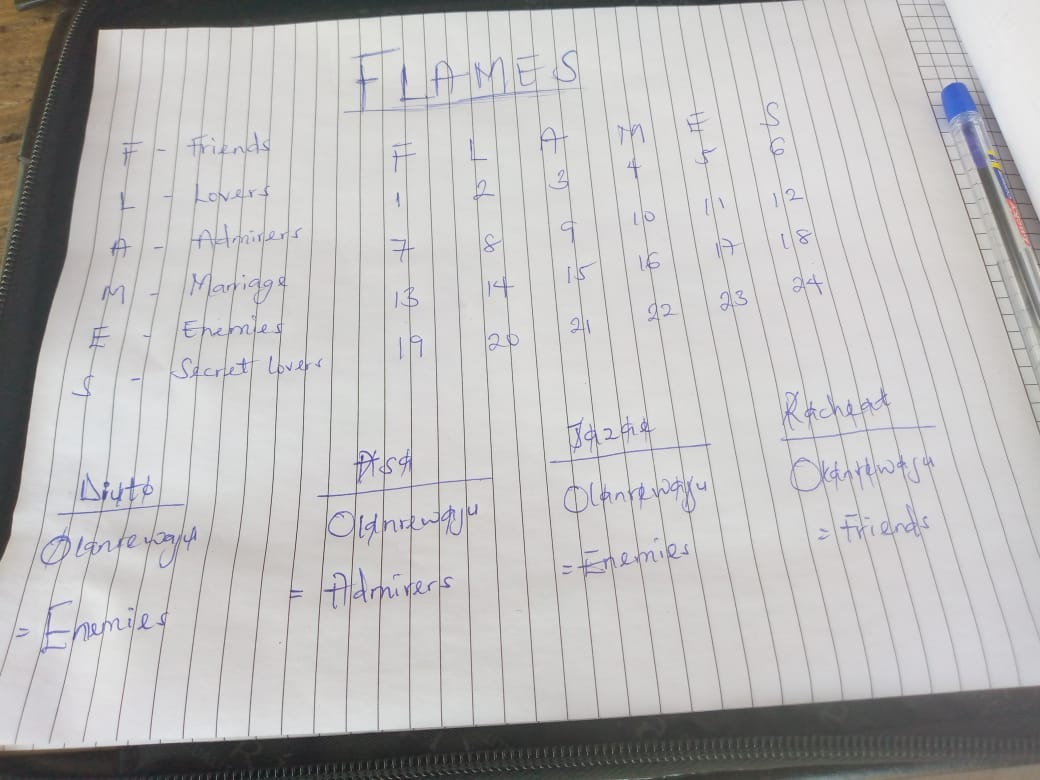 FLAMES
F - Friends
L - Lovers
A - Admirers
M - Marriage
E - Enemies
S - Secret lovers
F L A M E S
1 2 3 4 5 6
7 8 9 10 11 12
13 14 15 16 17 18
19 20 21 22 23 24
Olanrewaju
= Enemies
Asa
Olanrewaju
= Admirers
Olanrewaju
= Enemies
Racheat
Olanrewaju
= Friends